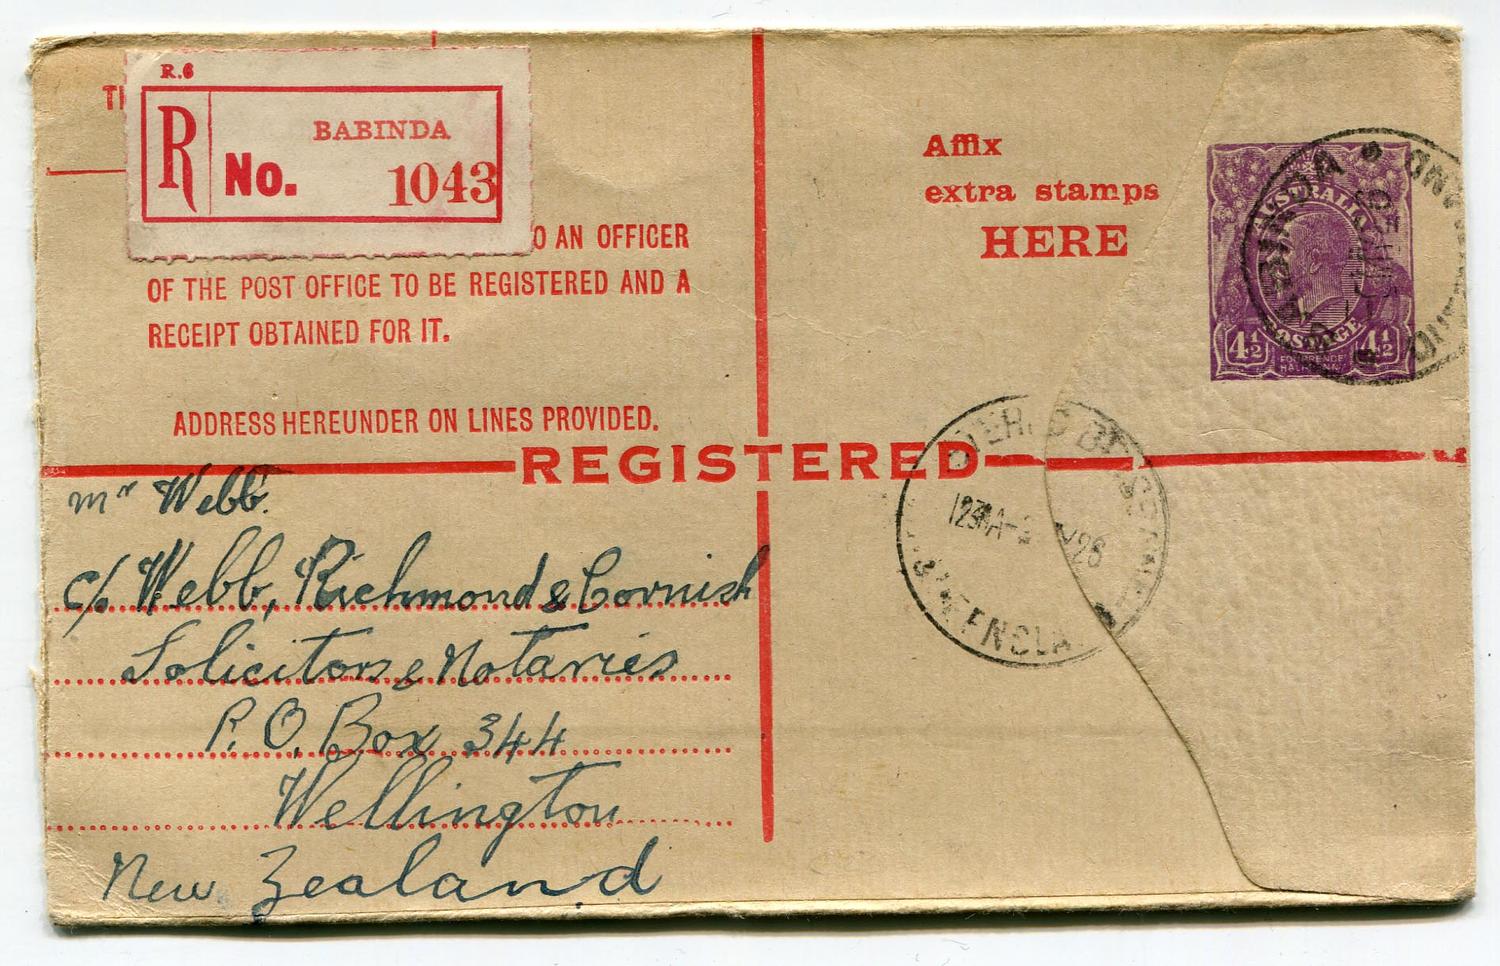 R.6
R
BABINDA
No. 1043
O AN OFFICER
OF THE POST OFFICE TO BE REGISTERED AND A
RECEIPT OBTAINED FOR IT.
ADDRESS HEREUNDER ON LINES PROVIDED.
Affix
extra stamps
HERE
AUSTRALIA
POSTAGE
4½ 4½
FOURPENCE
HALFPENNY
BABINDA
REGISTERED
Mr Webb.
c/o Webb, Richmond & Cornish
Solicitors & Notaries
P.O. Box 344
Wellington
New Zealand